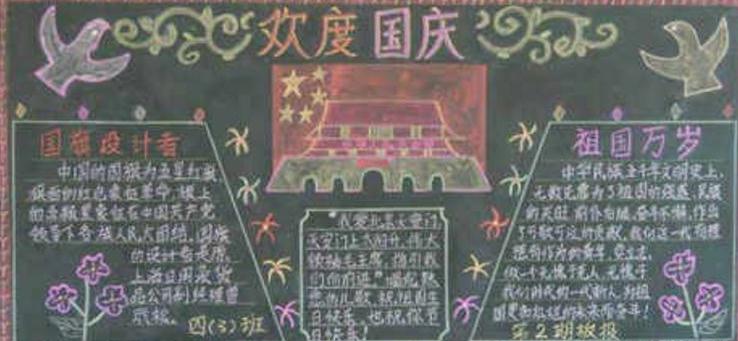 欢度国庆
国旗设计者
中国的国旗为五星红旗
旗面的红色象征革命,旗上
的五颗星象征在中国共产党
领导下各族人民大团结。国旗
的设计者是原
上海日用杂货
品公司副经理曾
联松。
四(3)班
"我爱北京天安门
天安门上太阳升,伟大
领袖毛主席,指引我
们向前进"唱起熟
悉的儿歌,祝祖国生
日快乐,也祝你节
日快乐!
祖国万岁
中华民族五千年文明史上,
无数先鹰为了祖国的强盛、民族
的
奋斗不解,作出
了可歌可泣的贡献,我们这一代
做一个无愧于先人,无愧于
我们时代的一代新人,为祖
国更加
未来而奋斗!
第2期板报